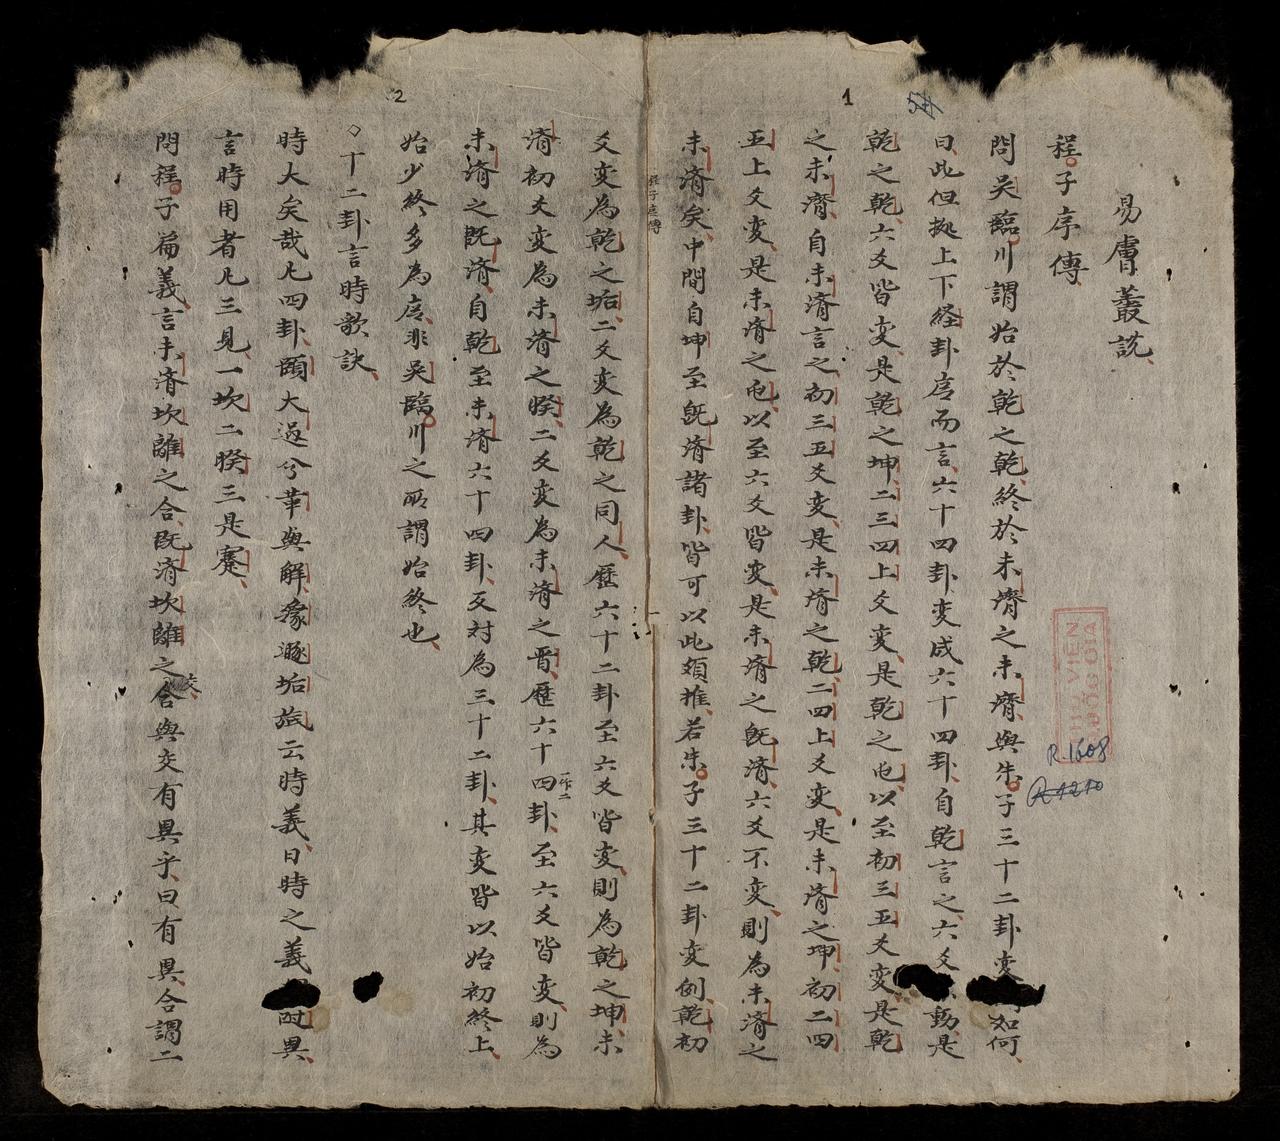 易膚叢説
程子序傳
問吴臨川謂始於乾之乾終於未濟之未濟與朱子三十二卦变如何
曰此但㨿上下経卦序而言六十四卦变成六十四卦自乾言之六爻動是
乾之乾六爻皆变是乾之坤二三四上爻变是乾之屯以至初三五爻变是乾
之未濟自未濟言之初三五爻变是未濟之乾二四上爻变是未濟之坤初二四
五上爻变是未濟之屯以至六爻皆变是未濟之既濟六爻不变則為未濟之
未濟矣中間自坤至既濟諸卦皆可以此類推若朱子三十二卦变例乾初
爻变為乾之垢二爻变為乾之同人歷六十二卦至六爻皆变則為乾之坤未
濟初爻变為未濟之睽二爻变為未濟之晋歷六十四卦至六爻皆变則為
一作二
未濟之既濟自乾至未濟六十四卦反対為三十二卦其变皆以始初終上
始少終多為序非吴臨川之所謂始終也
○十二卦言時歌訣
時大矣哉凡四卦頤大過兮革與解豫遯垢旅云時義曰時之義時異
言時用者凡三見一坎二睽三是蹇
問程子篇義言未濟坎離之合既濟坎離之交與交有異乎曰有異合謂二
1
2
THƯ VIỆN
QUỐC GIA
R.1608